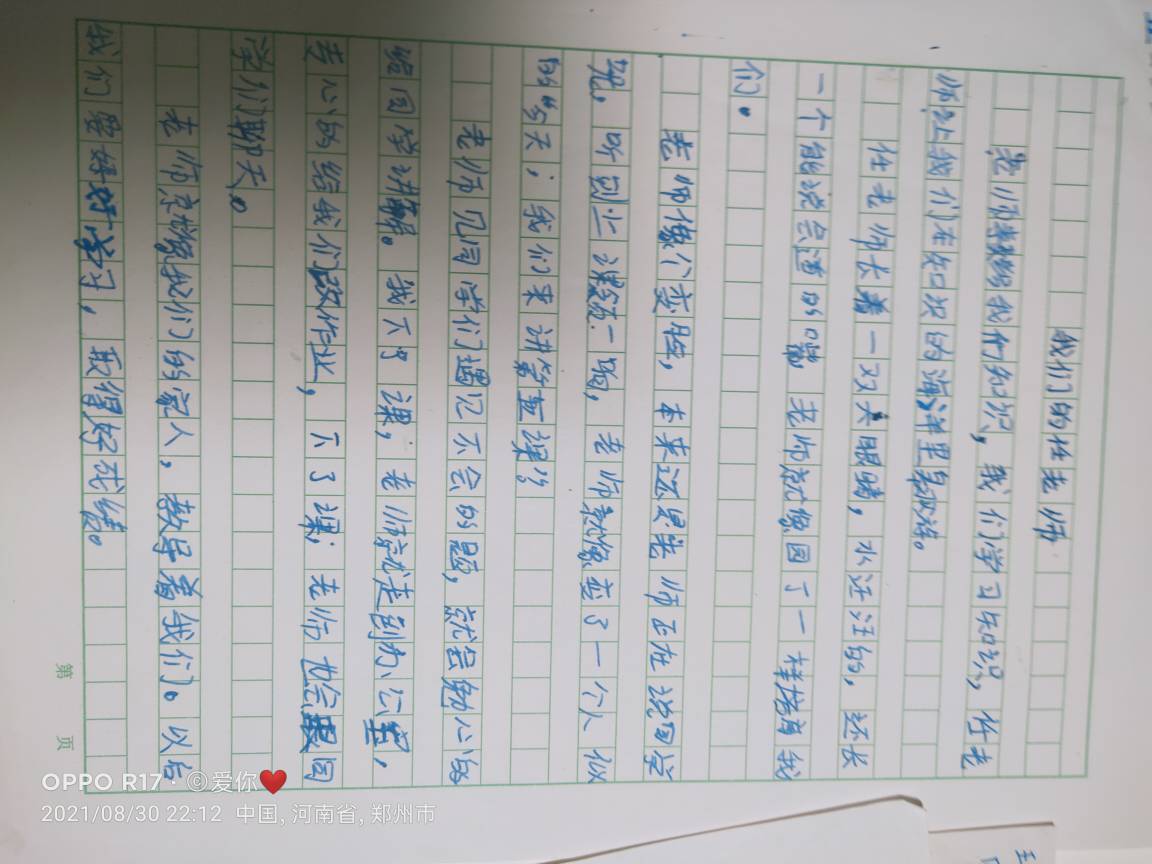 我们的任老师
老师教给我们知识，我们学习知识，任老
师让我们在知识的海洋里
任老师长着一双大眼睛，水汪汪的，还长
一个能说会道的嘴，老师就像园丁一样培育我
们。
老师像个变脸，本来还是老师正在说同学
呢，听到上课铃一响，老师就像变了一个人似
的“今天；我们来讲第五课”
老师见同学们遇记不会的题，就会勉心的
给同学讲解。我下了课，老师就走到办公室，
专心的给我们改作业，下了课；老师也会跟同
学们聊天。
老师就像我们的家人，教导着我们。以后
我们要好好学习，取得好成绩。
第 页
OPPO R17 · ©爱你❤️
2021/08/30 22:12 中国, 河南省, 郑州市